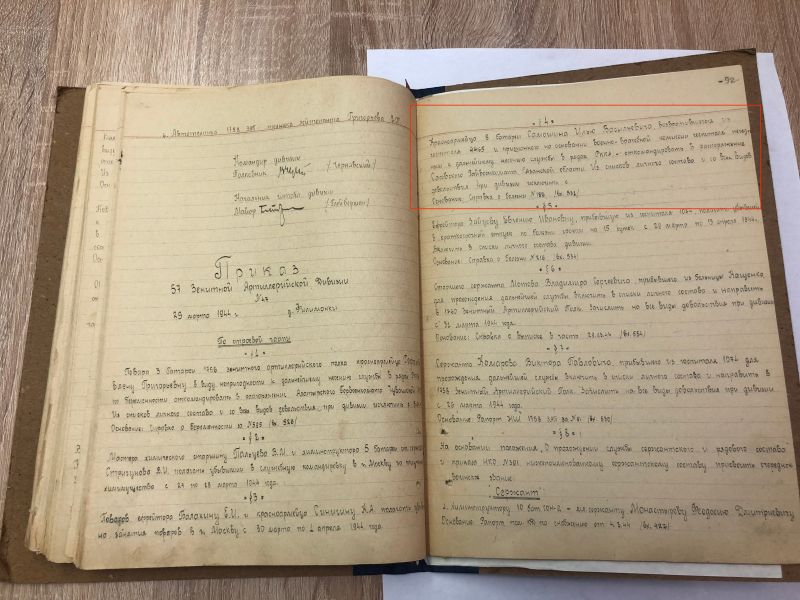 2. 1758 зап лейтенанта Григорьева
Командир дивизии
Полковник /Чернявский/
Начальник штаба дивизии
Майор
Приказ
57 Зенитной Артиллерийской Дивизии
№ 47
29 марта 1944 г. д. Филимонки
По строевой части
§ 1
Повара 3 батареи 1758 зенитного артиллерийского полка красноармейца
Григорьевну в виду непригодности к дальнейшему несению службы в рядах
по беременности откомандировать в распоряжение Алатырского Горвоенкомата Чувашской
Из списков личного состава и со всех видов довольствия при дивизии исключить с
Основание: Справка о беременности № 525 /Вх. 528/
§ 2
Мастера химического старшину Пальцева В.И. и химинструктора 5 батареи
Стригунова В.И. полагать убывшими в служебную командировку в г. Москву за
химимущества с 27 по 28 марта 1944 года.
§ 3
Поваров ефрейтора Балакину Е.И. и красноармейца Синигину А.А. полагать
на занятия поваров в г. Москву с 30 марта по 1 апреля 1944 года.
-92-
§ 4
Красноармейца 5 батареи Саломина Илью Васильевича, возвратившегося из
госпиталя 2465 и признанного на основании военно-врачебной комиссии госпиталя
к дальнейшему несению службы в рядах РККА - откомандировать в распоряжение
Райвоенкомата Рязанской области. Из списков личного состава и со всех видов
довольствия при дивизии исключить с
Основание: Справка о болезни № 188 /Вх. 532/
§ 5
Ефрейтора Зайцеву Евгению Ивановну, прибывшую из госпиталя 1074, полагать убывшей
в краткосрочный отпуск по болезни сроком на 15 суток с 29 марта по 13 апреля 1944
Включить в списки личного состава дивизии.
Основание: Справка о болезни № 216 /Вх. 531/
§ 6
Старшего сержанта Мотова Владимира Сергеевича, прибывшего из больницы Кащенко
для прохождения дальнейшей службы включить в списки личного состава и направить
в 1740 Зенитный Артиллерийский Полк. Зачислить на все виды довольствия при дивизии
с 31 марта 1944 года.
Основание: Справка о выписке в часть /Вх. 534/
§ 7
Сержанта Комарова Виктора Павловича, прибывшего из госпиталя 1074 для
прохождения дальнейшей службы включить в списки личного состава и направить в
1758 Зенитный Артиллерийский Полк. Зачислить на все виды довольствия при дивизии
с 26 марта 1944 года.
Основание: Рапорт 1758 зап № 81 /Вх. 530/
§ 8
На основании положения "О прохождении службы сержантского и рядового состава"
и приказа НКО № нижепоименованному сержантскому составу присвоить очередное
воинское звание:
"Сержант"
1. Химинструктору 10 бат СОН-2 - мл. сержанту Монастыреву Феодосию Дмитриевичу
Основание: Рапорт по снабжению от 4.3.44 /Вх. 427/